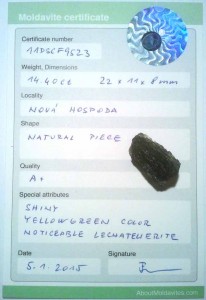 Moldavite certificate
Certificate number
11DSCF9523
Weight, Dimensions
14.40ct 22 x 11 x 8mm
Locality
NOVÁ HOSPODA
Shape
NATURAL PIECE
Quality
A+
Special attributes
SHINY
YELLOWGREEN COLOR
NOTICEABLE LECHATELIERITE
Date
5.1.2015
Signature
AboutMoldavites.com